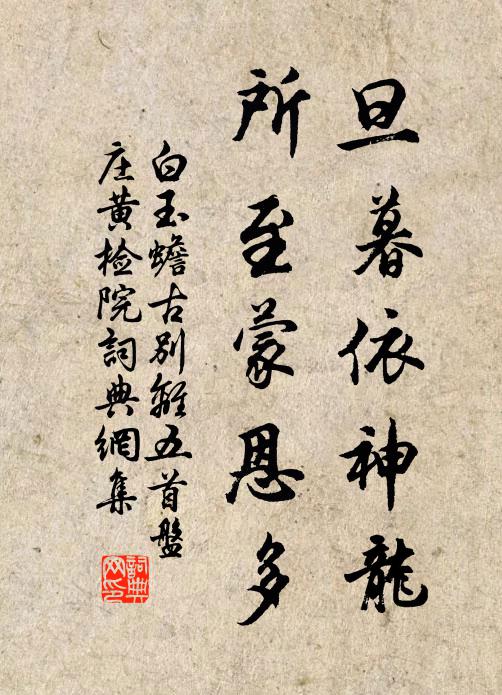 旦暮依神龍
所至蒙恩多
白玉蟾古别離五首盤
庄黄检院詞典網集
詞典網印